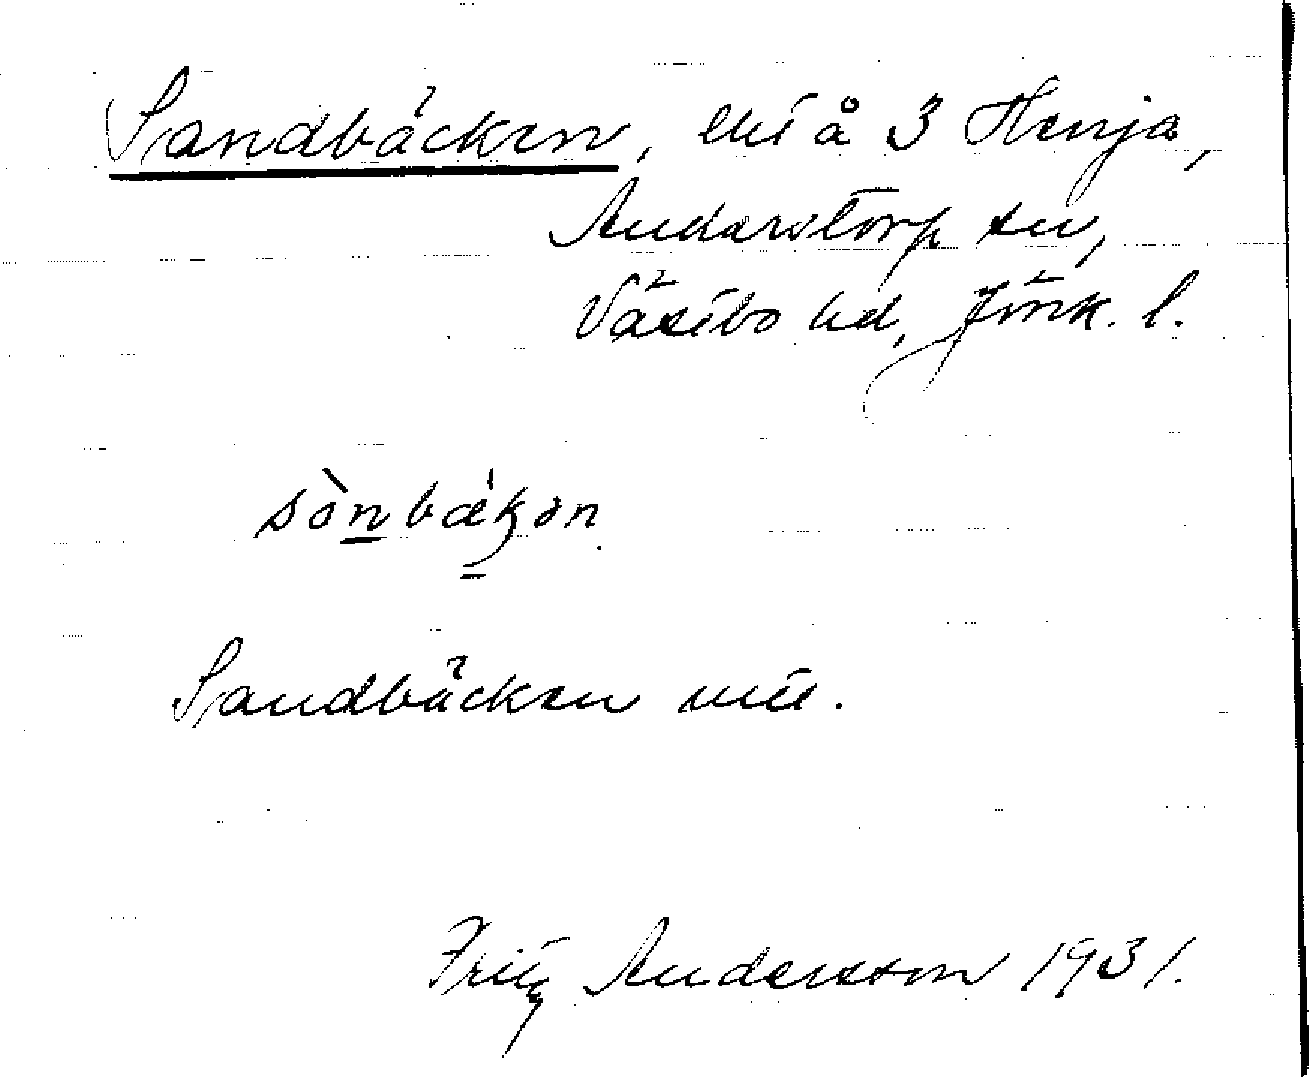 Sandbäcken, lht å 3 Henja,
Anderstorp sn,
Västbo hd, Jönk. l.
sònbækən
Sandbäcken
Fritz Andersson 1931.